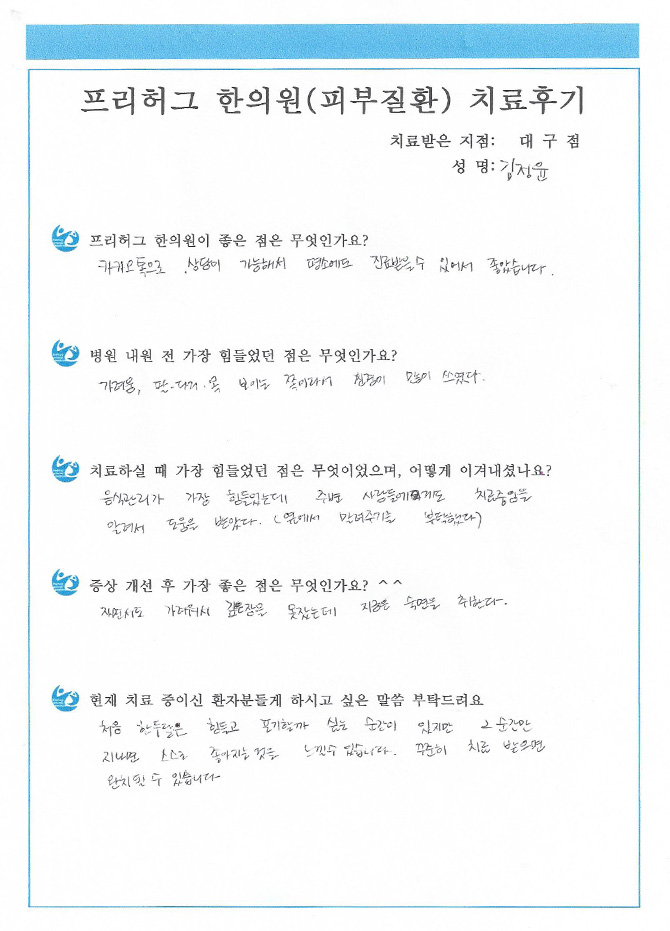 프리허그 한의원(피부질환) 치료후기
치료받은 지점: 대 구 점
성 명: 김정윤
프리허그 한의원이 좋은 점은 무엇인가요?
카카오톡으로 상담이 가능해서 평소에도 진료받을수 있어서 좋았습니다.
병원 내원 전 가장 힘들었던 점은 무엇인가요?
가려움, 팔·다리·목 보이는 쪽이라서 신경이 많이 쓰였다.
치료하실 때 가장 힘들었던 점은 무엇이었으며, 어떻게 이겨내셨나요?
음식관리가 가장 힘들었는데 주변 사람들에게 치료중임을
알려서 도움을 받았다. (옆에서 말려주기를 부탁했다)
증상 개선 후 가장 좋은 점은 무엇인가요? ^^
가려워서 깊은잠을 못잤는데 지금은 숙면을 취한다.
현재 치료 중이신 환자분들게 하시고 싶은 말씀 부탁드려요
처음 한두달은 힘들고 포기할까 싶은 순간이 있지만 그 순간만
지나면 스스로 좋아지는 것을 느낄수 있습니다. 꾸준히 치료 받으면
완치될 수 있습니다